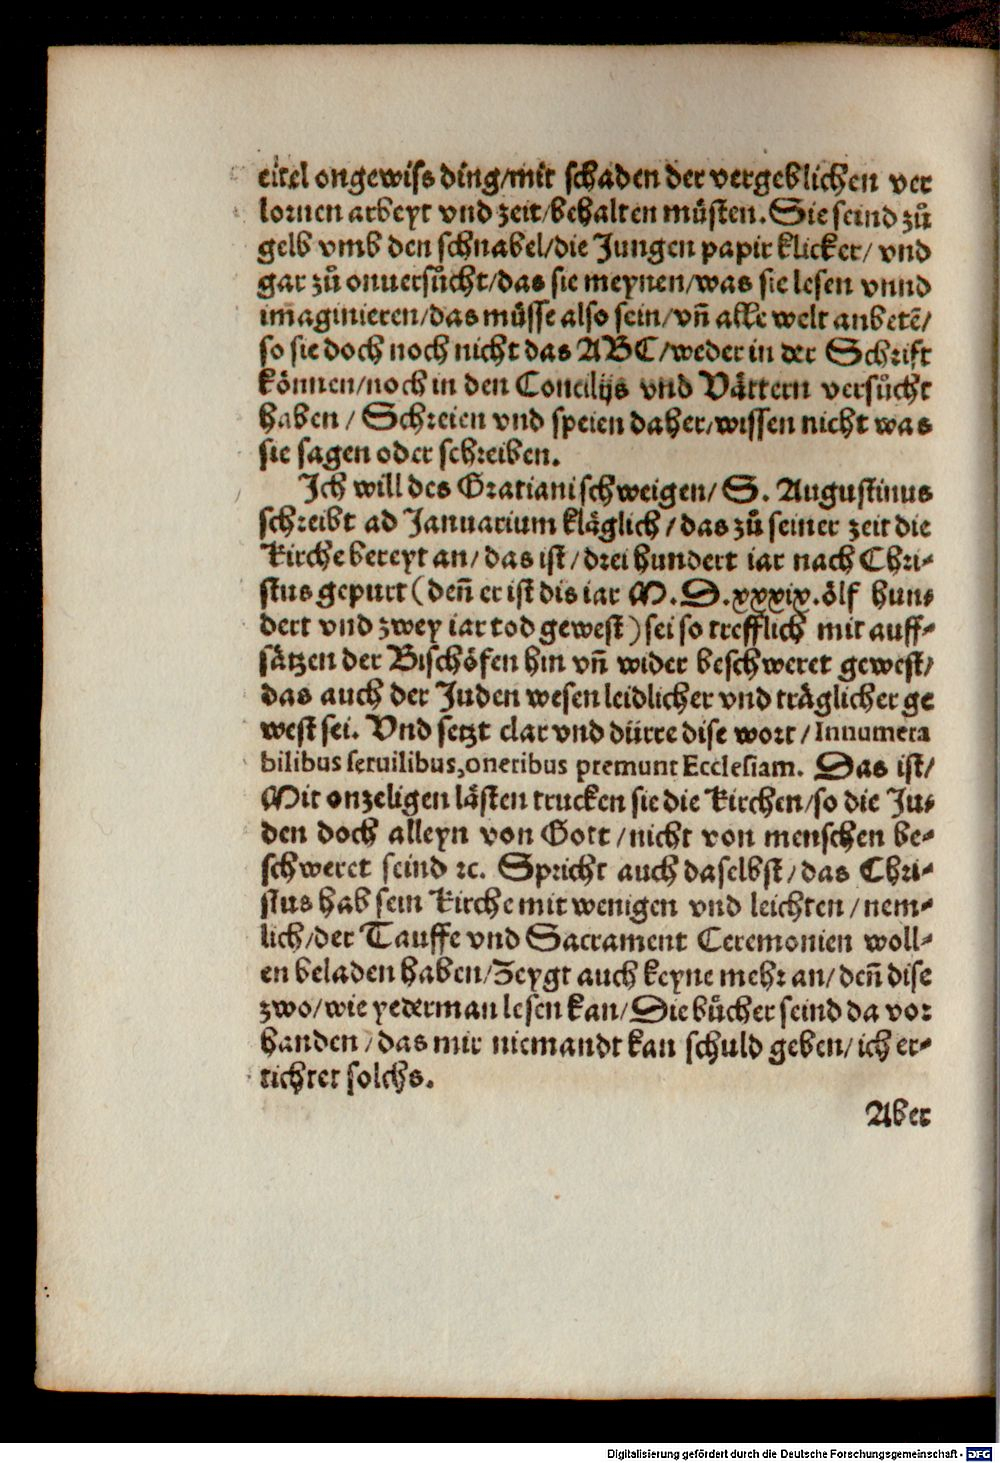 eitel ongewiss ding/mit schaden der vergeblichen ver
lornen arbeyt vnd zeit/behalten müsten. Sie seind zů
gelb vmb den schnabel/die Jungen papir klicker/ vnd
gar zů onuersůcht/das sie meynen/was sie lesen vnnd
imaginieren/das müsse also sein/vñ alle welt anbetẽ/
so sie doch noch nicht das ABC/weder in der Schrift
können/noch in den Concilijs vnd Vättern versůcht
haben/ Schreien vnd speien daher/wissen nicht was
sie sagen oder schreiben.
Ich will des Gratiani schweigen/ S. Augustinus
schreibt ad Januarium kläglich/das zů seiner zeit die
Kirche bereyt an/das ist/drei hundert iar nach Chri-
stus gepurt (deñ er ist dis iar M. D. xxxix. ölf hun-
dert vnd zwey iar tod gewest) sei so trefflich mit auff-
sätzen der Bischöfen hin vñ wider beschweret gewest/
das auch der Juden wesen leidlicher vnd träglicher ge
west sei. Vnd setzt clar vnd dürre dise wort/Innumera
bilibus seruilibus,oneribus premunt Ecclesiam. Das ist/
Mit onzeligen lästen trucken sie die Kirchen/so die Ju-
den doch alleyn von Gott/nicht von menschen be-
schweret seind ꝛc. Spricht auch daselbst/das Chri-
stus hab sein Kirche mit wenigen vnd leichten/nem-
lich/der Tauffe vnd Sacrament Ceremonien woll-
en beladen haben/Zeygt auch keyne mehr an/deñ dise
zwo/wie yederman lesen kan/Die bücher seind da vor
handen/das mir niemandt kan schuld geben/ich er-
tichtet solchs.
Aber
Digitalisierung gefördert durch die Deutsche Forschungsgemeinschaft - DFG